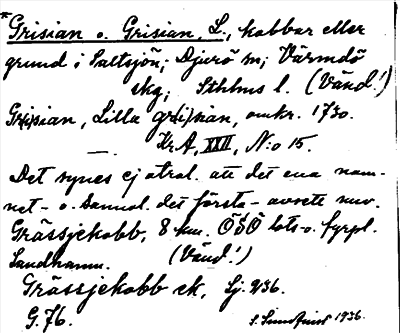 *Grisian o. Grisian, L., kobbar eller
grund i Saltsjön; Djurö sn; Värmdö
skg; Sthlms l. (Vänd!)
Gr(i)sian, Lilla gr(i)sian, omkr. 1730.
Kr.A, XXII, N:o 15.
Det synes ej otrol. att det ena nam-
net - o. sannol. det första - avsett nuv.
Grässjekobb, 8 km. ÖSÖ lots- o. fyrpl.
Sandhamn. (Vänd!)
Grässjekobb ek, Sj. 9/36.
G. 76. 1936.